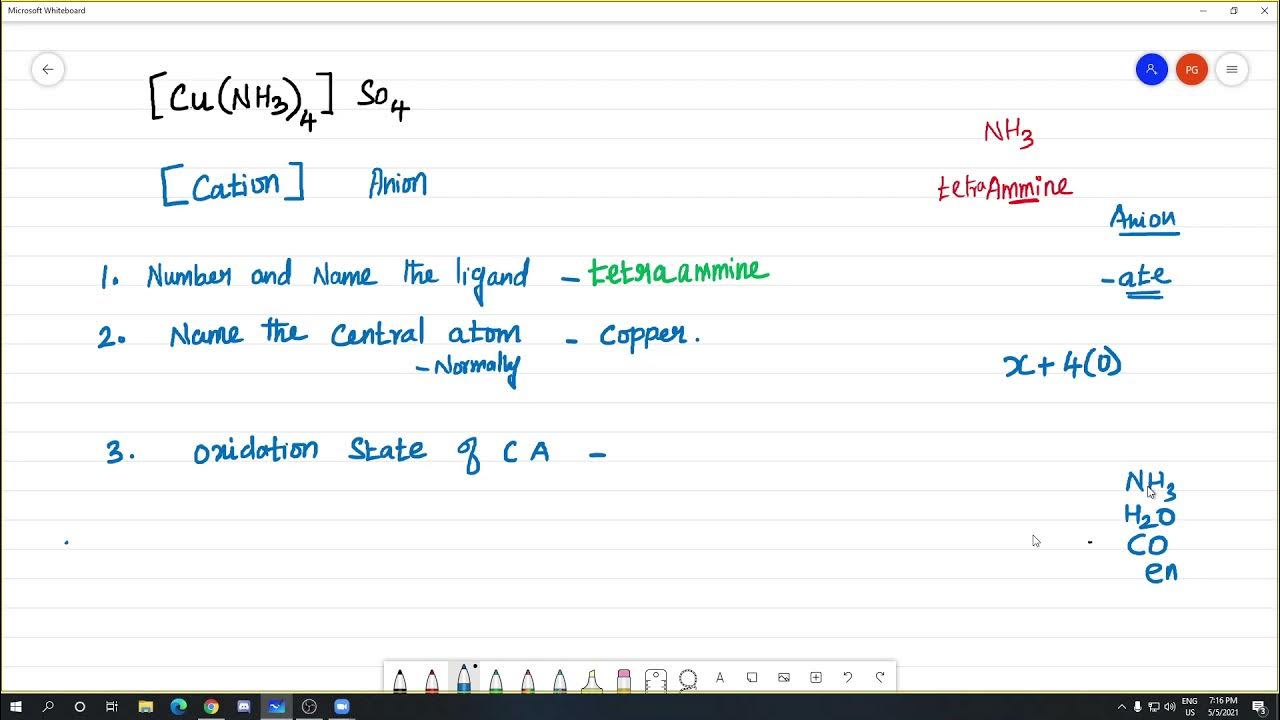 Microsoft Whiteboard
[Cu(NH3)4] So4
PG
NH3
[Cation] Anion
tetraAmmine
Anion
1. Number and Name the ligand - tetraammine
-ate
2. Name the Central atom - Copper.
-Normally
x + 4(0)
3. Oxidation State of C A -
NH3
H2O
CO
en
A
ENG
US
7:16 PM
5/5/2021
3